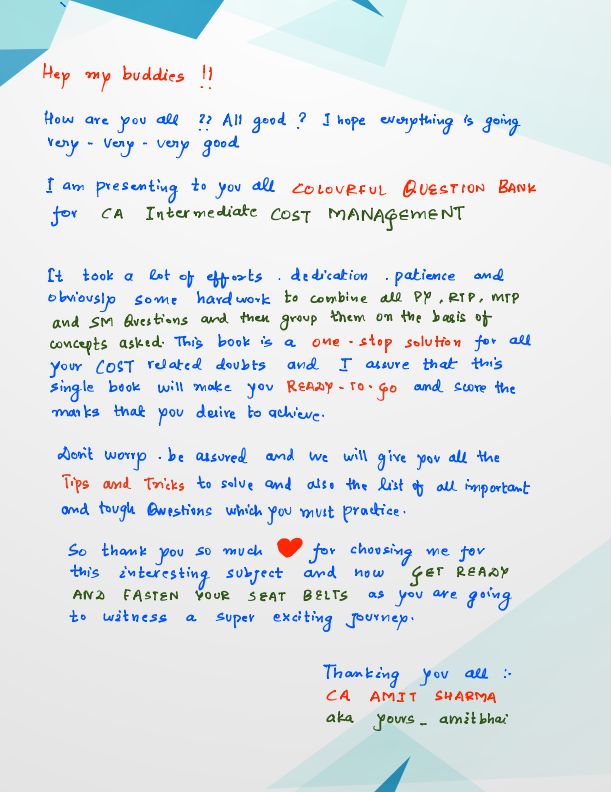 Hey my buddies !!
How are you all ?? All good ? I hope everything is going
very - very - very good
I am presenting to you all COLOURFUL QUESTION BANK
for CA Intermediate COST MANAGEMENT
It took a lot of efforts . dedication . patience and
obviously some hardwork to combine all PY , RTP , MTP
and SM Questions and then group them on the basis of
concepts asked. This book is a one - stop solution for all
your COST related doubts and I assure that this
single book will make you READY - TO - GO and score the
marks that you desire to achieve.
Don't worry . be assured and we will give you all the
Tips and Tricks to solve and also the list of all important
and tough Questions which you must practice.
So thank you so much ❤ for choosing me for
this interesting subject and now GET READY
AND FASTEN YOUR SEAT BELTS as you are going
to witness a super exciting journey.
Thanking you all :-
CA AMIT SHARMA
aka yours_ amitbhai